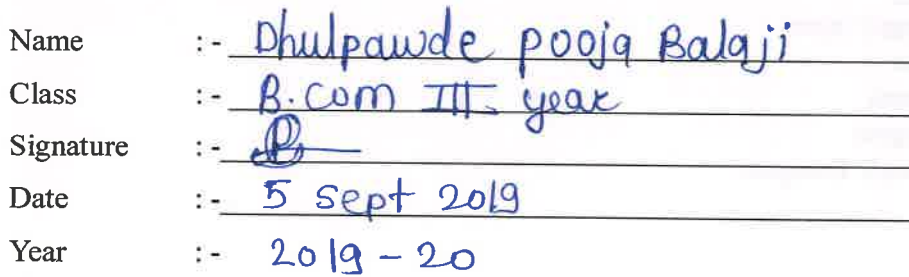 Name :- Dhulpawde pooja Balaji
Class :- B.com III year
Signature :-
Date :- 5 Sept 2019
Year :- 2019-20